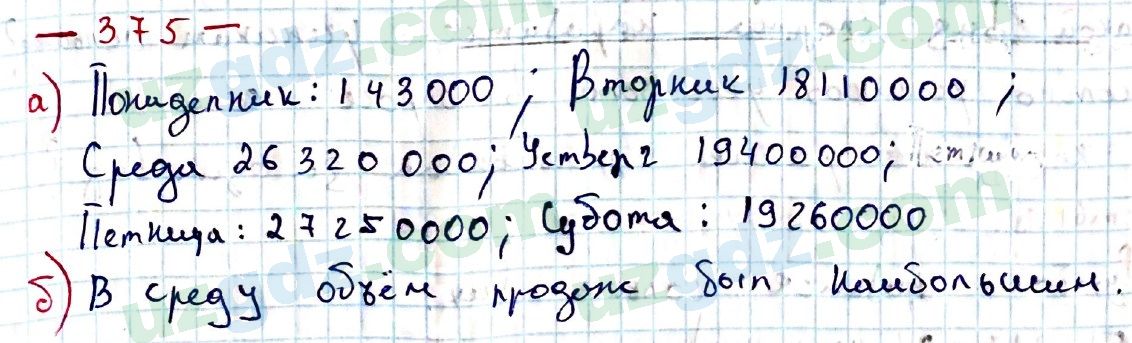 — 375 —
а) Пониделник: 143 000 ; Вторник 18110000 ;
Среда 26 320 000; Четверг 19400000;
Петница: 27250000; Субота: 19260000
б) В среду объём продаж был наибольшим.
uzgdz.com
uzgdz.com
uzgdz.com
uzgdz.com